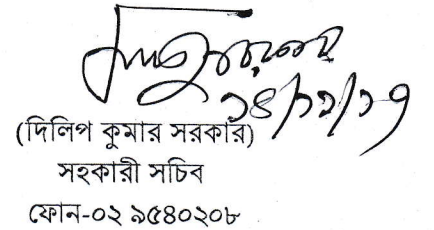 ১৪/১১/১৭
(দিলিপ কুমার সরকার)
সহকারী সচিব
ফোন-০২ ৯৫৪০২০৮